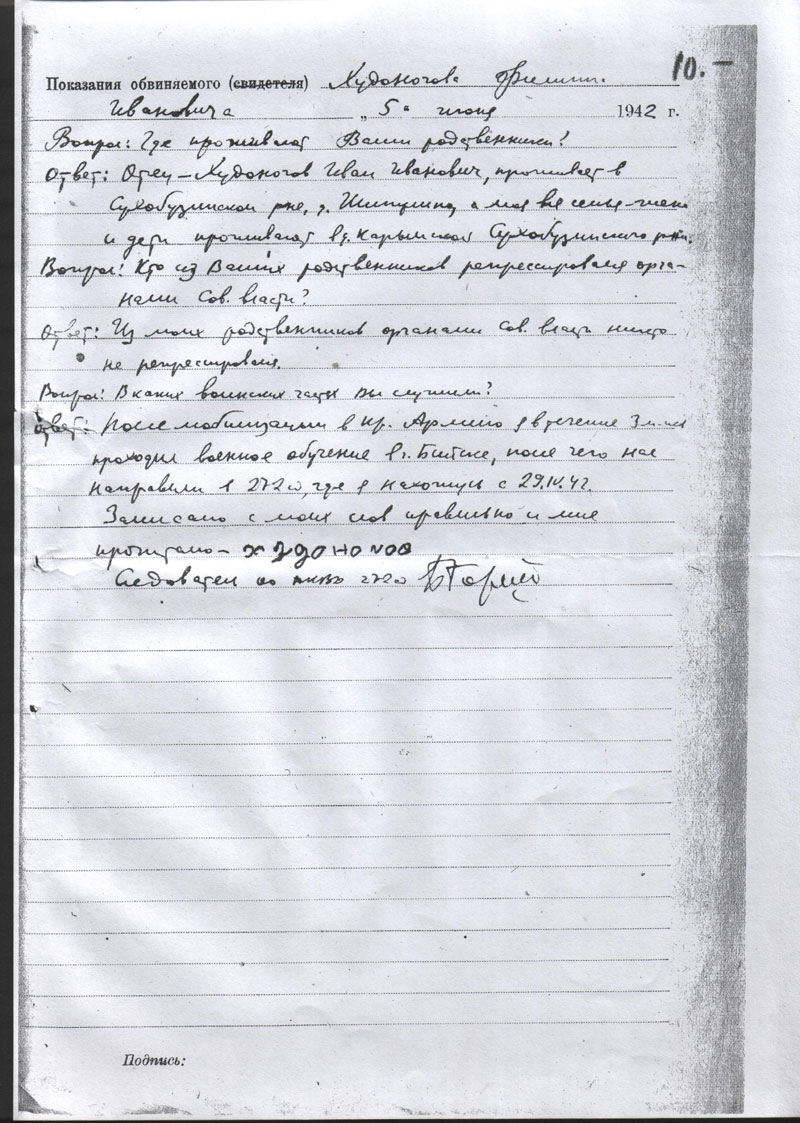 10.-
Показания обвиняемого (свидетеля) Худоногова Филипп.
Ивановича „5" июня 1942 г.
Вопрос: Где проживают Ваши родственники?
Ответ: Отец – Худоногов Иван Иванович, проживает в
Сухобузимском р-не, д. Шипулино, а моя вся семья-
и дети проживают в д. Карымской Сухобузимского р-на.
Вопрос: Кто из Ваших родственников репрессировался орга-
нами Сов. власти?
Ответ: Из моих родственников органами Сов. власти никто
не репрессировался.
Вопрос: В каких воинских частях Вы служили?
Ответ: После мобилизации в кр. Армию я в течение 3 м-цев
проходил военное обучение в г. Бийске, после чего нас
направили в где я нахожусь с 29.IV.42.
Записано с моих слов правильно и мне
прочитано – худоногов
Следователь
Подпись: